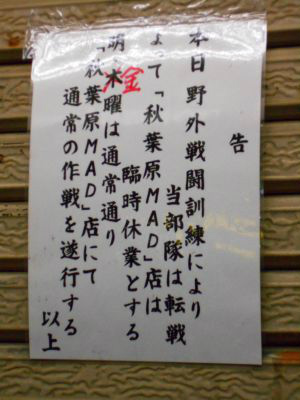 告
本日野外戦闘訓練により
当部隊は転戦
よて「秋葉原MAD」店は
臨時休業とする
明木金曜は通常通り
「秋葉原MAD」店にて
通常の作戦を遂行する
以上